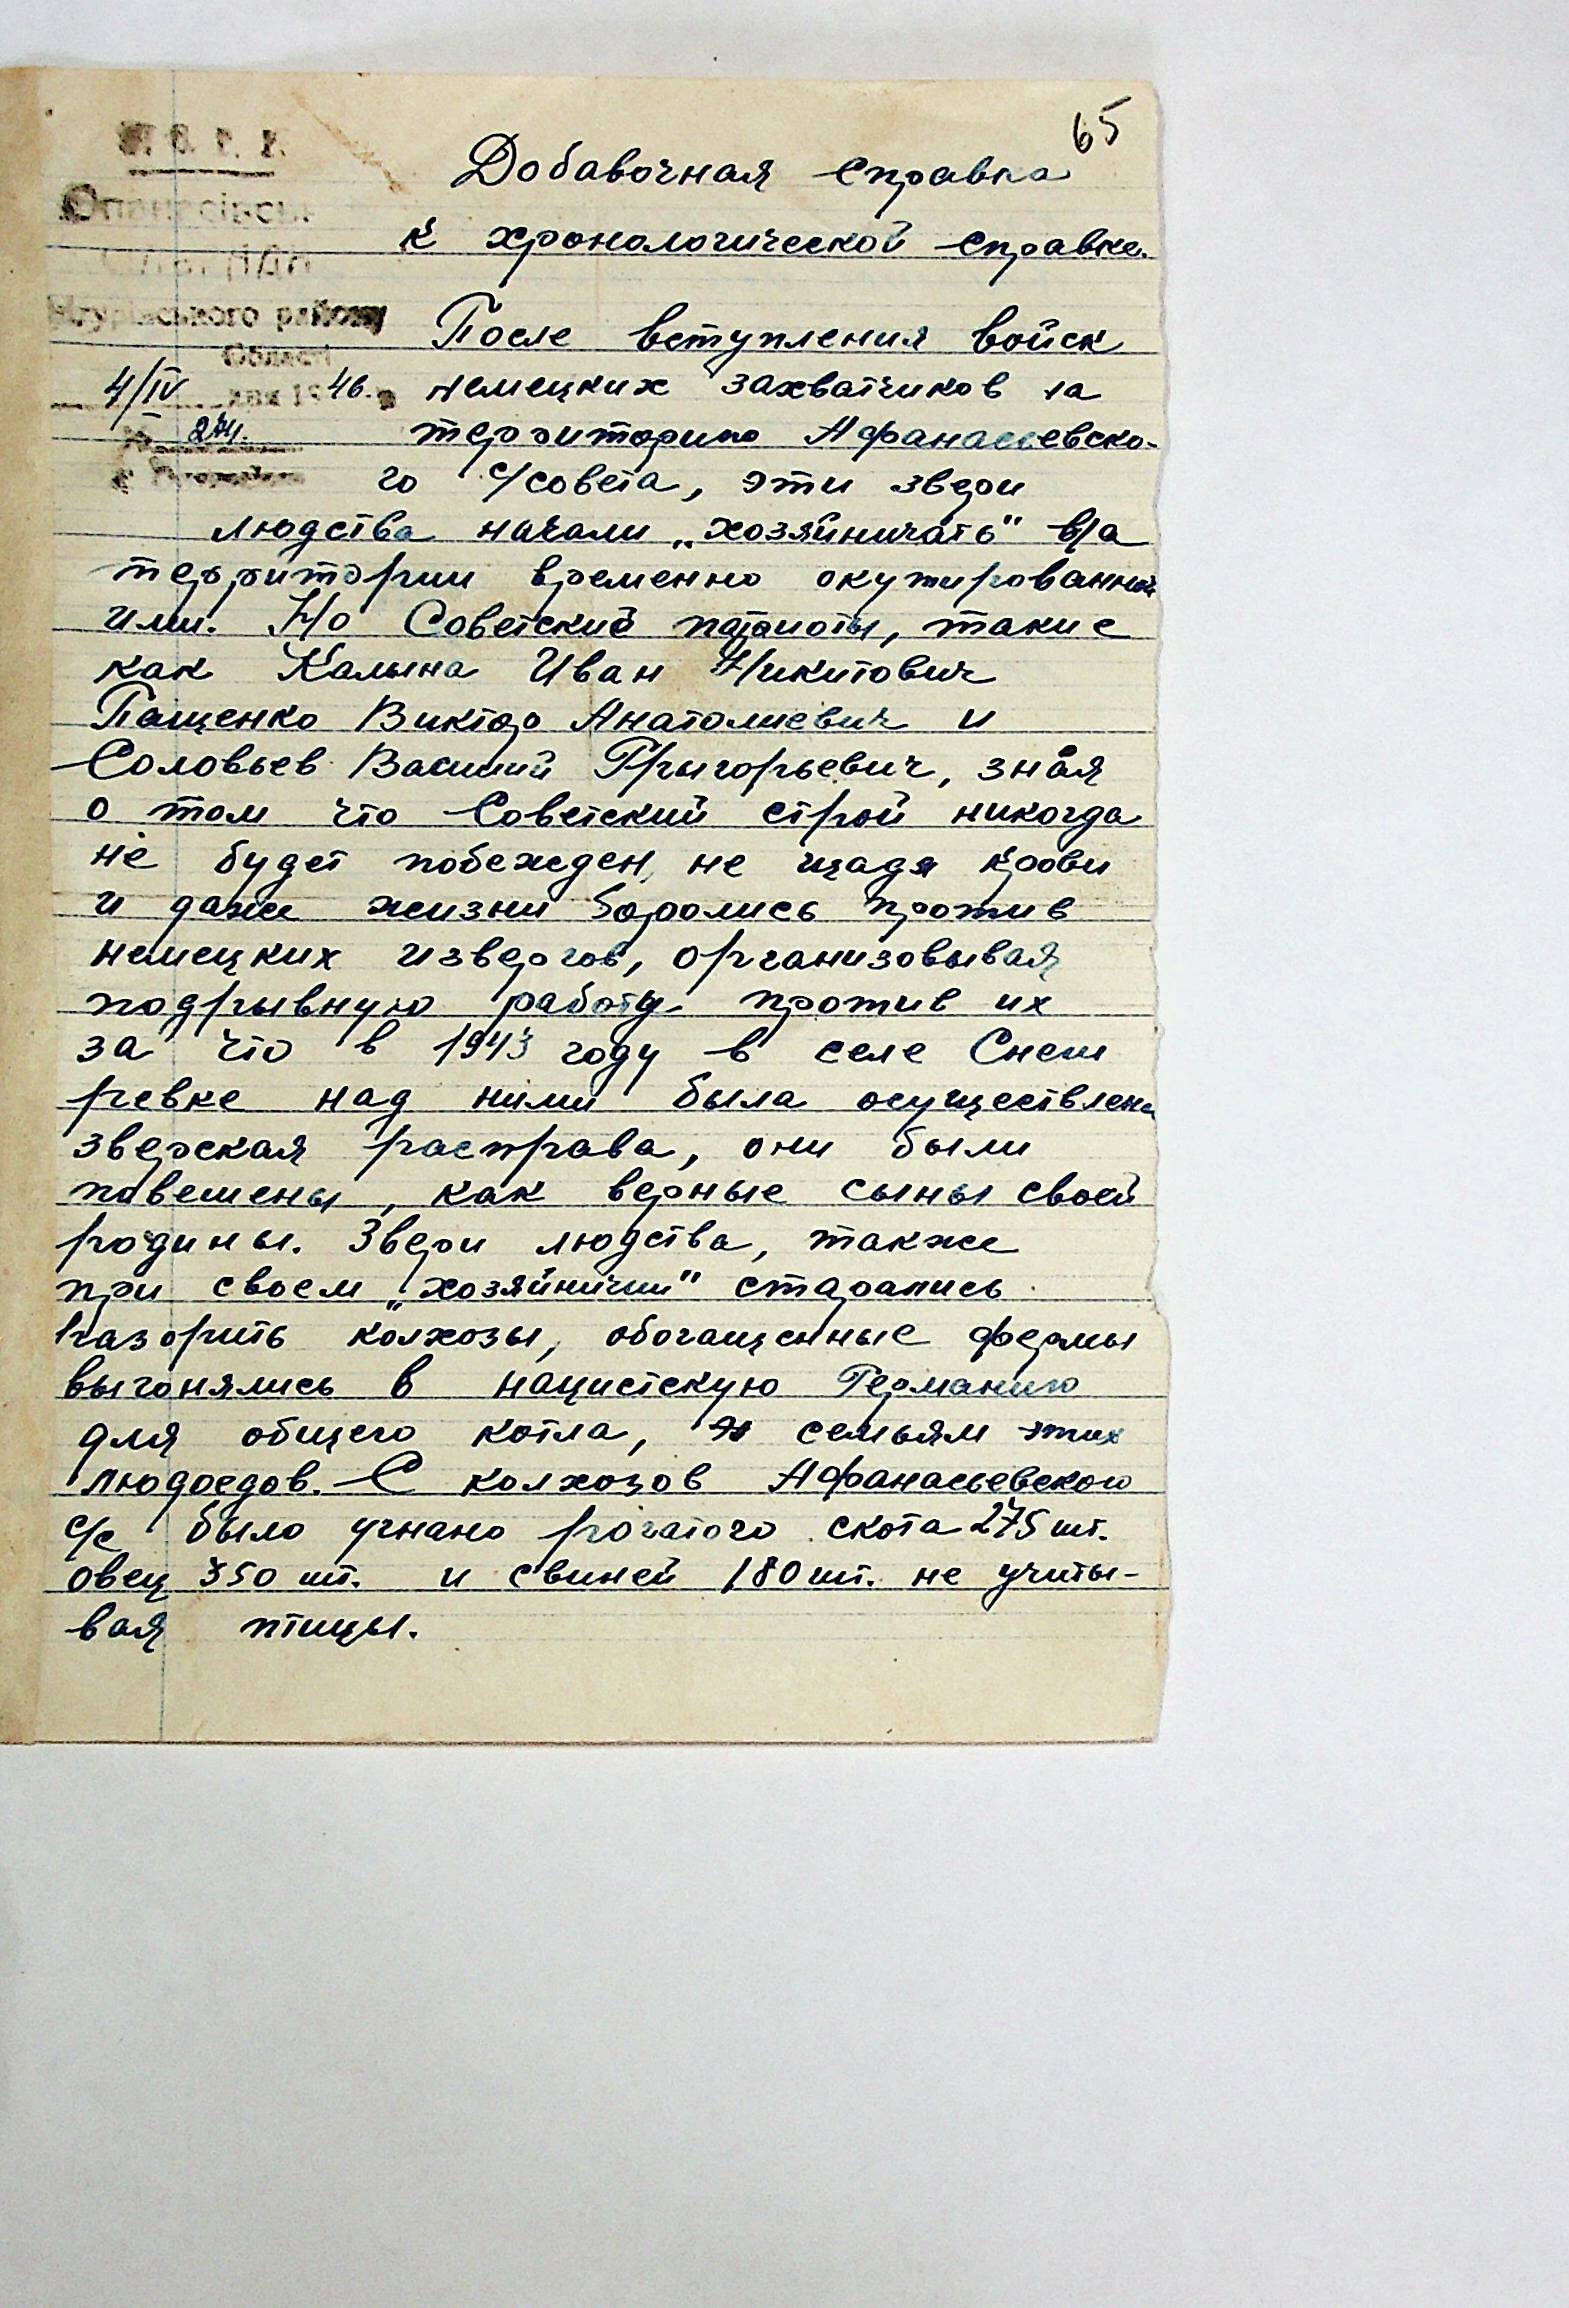 65
Добавочная справка
к хронологической справке.
У. С. С. Р.
Опанасівська
сільрада
району
Області
4/IV 46.
№ 274.
После вступления войск
немецких захватчиков на
территорию Афанасьевско-
го с/совета, эти звери
людства начали „хозяйничать" на
территории временно окупированной
ими. Но Советские патриоты, такие
как Калына Иван Никитович
Пащенко Виктор Анатолиевич и
Соловьев Василий Григорьевич, зная
о том что Советский строй никогда
не будет побежден, не щадя крови
и даже жизни боролись против
немецких извергов, организовывая
подрывную работу против их
за что в 1943 году в селе Снеги
ревке над ними была осуществлена
зверская расправа, они были
повешены, как верные сыны своей
родины. Звери людства, также
при своем „хозяйничии" старались
разорить колхозы, обогащенные фермы
выгонялись в нацистскую Германию
для общего котла, семьям этих
людоедов. С колхозов Афанасьевского
с/с было угнано рогатого скота 275 шт.
овец 350 шт. и свиней 180 шт. не учиты-
вая птицы.